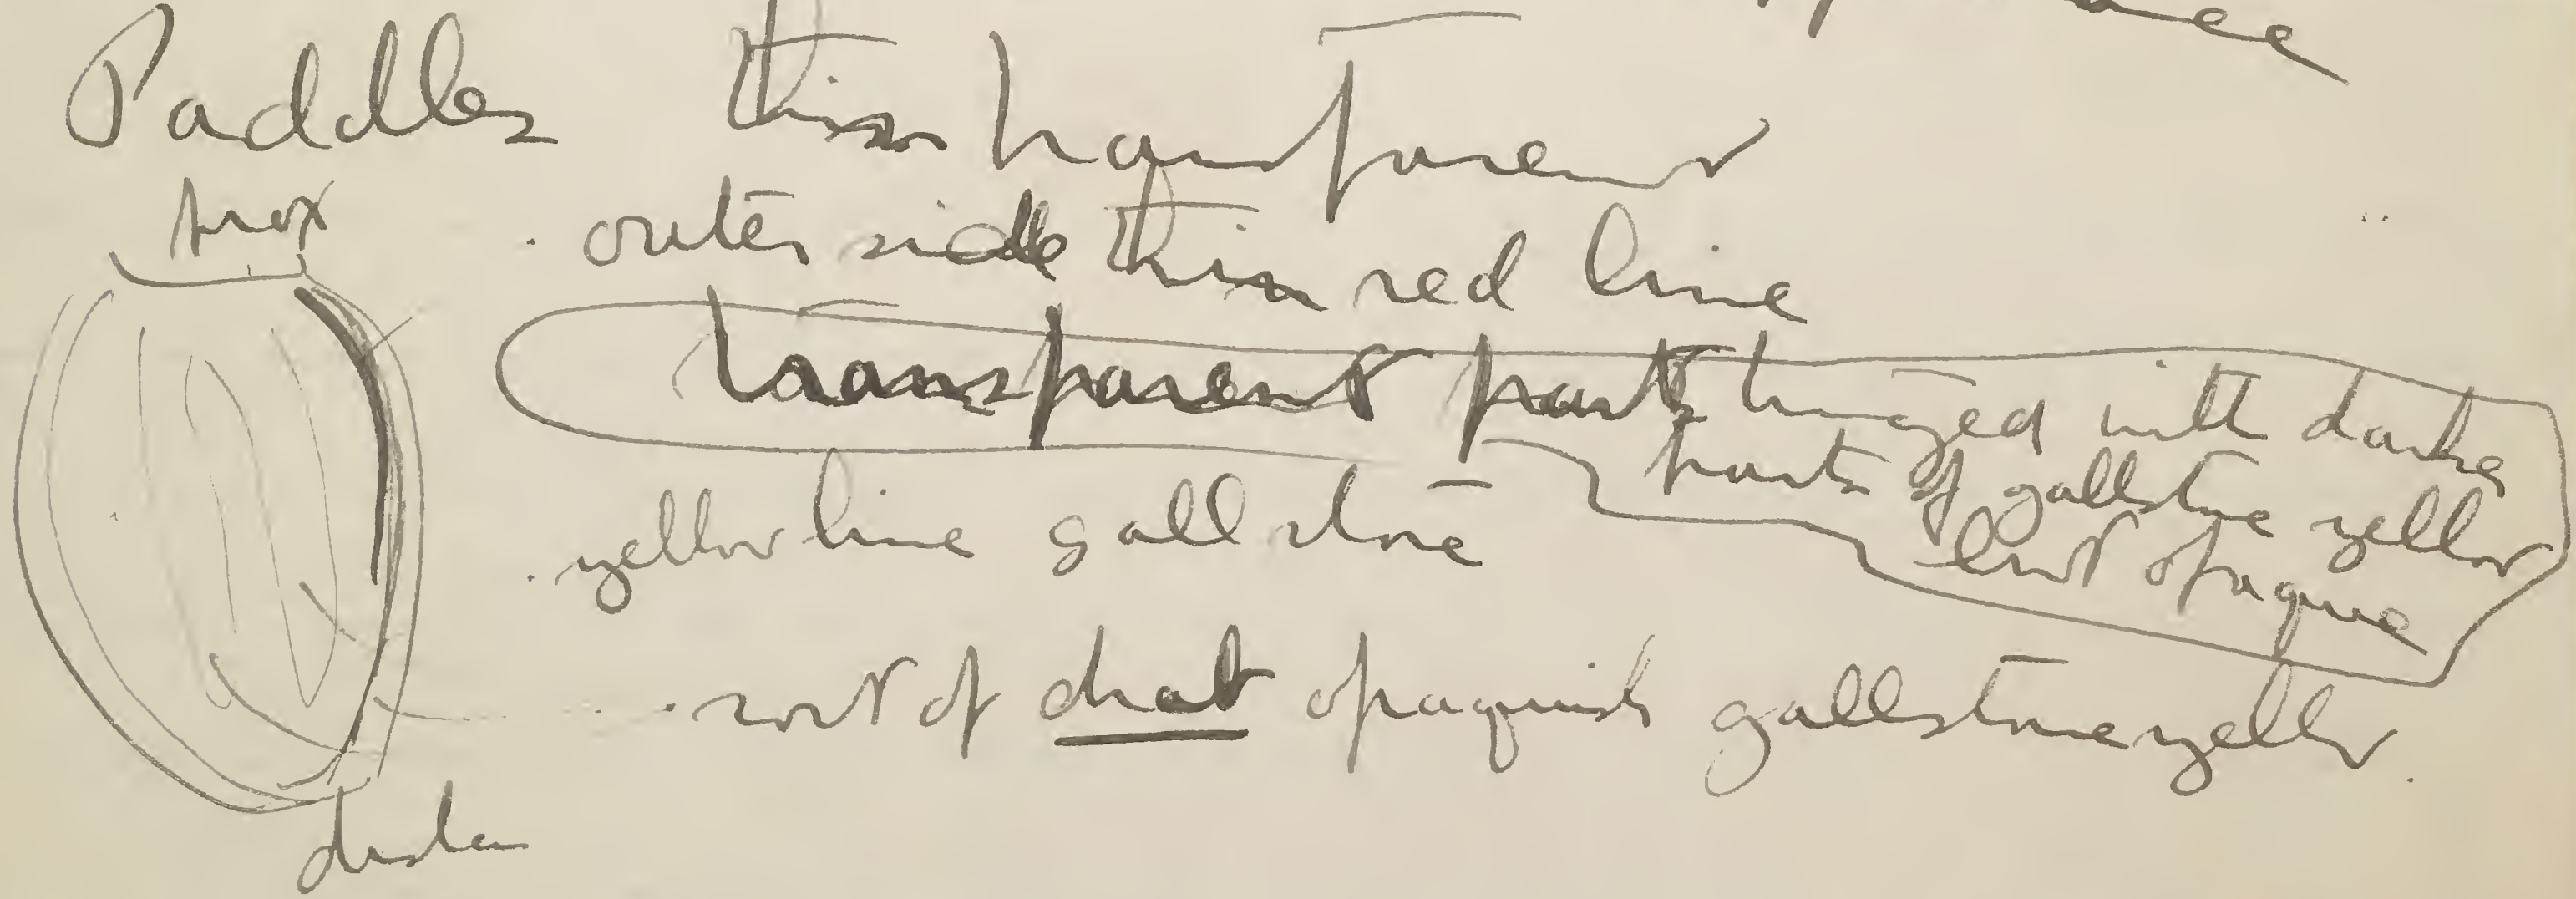 Paddles thin transparent
prox
outer side thin red line
transparent parts tinged with darker
parts of gallstone yellow
but opaque
yellow line gall stone
sort of drab opaquish gallstone yellow.
distal